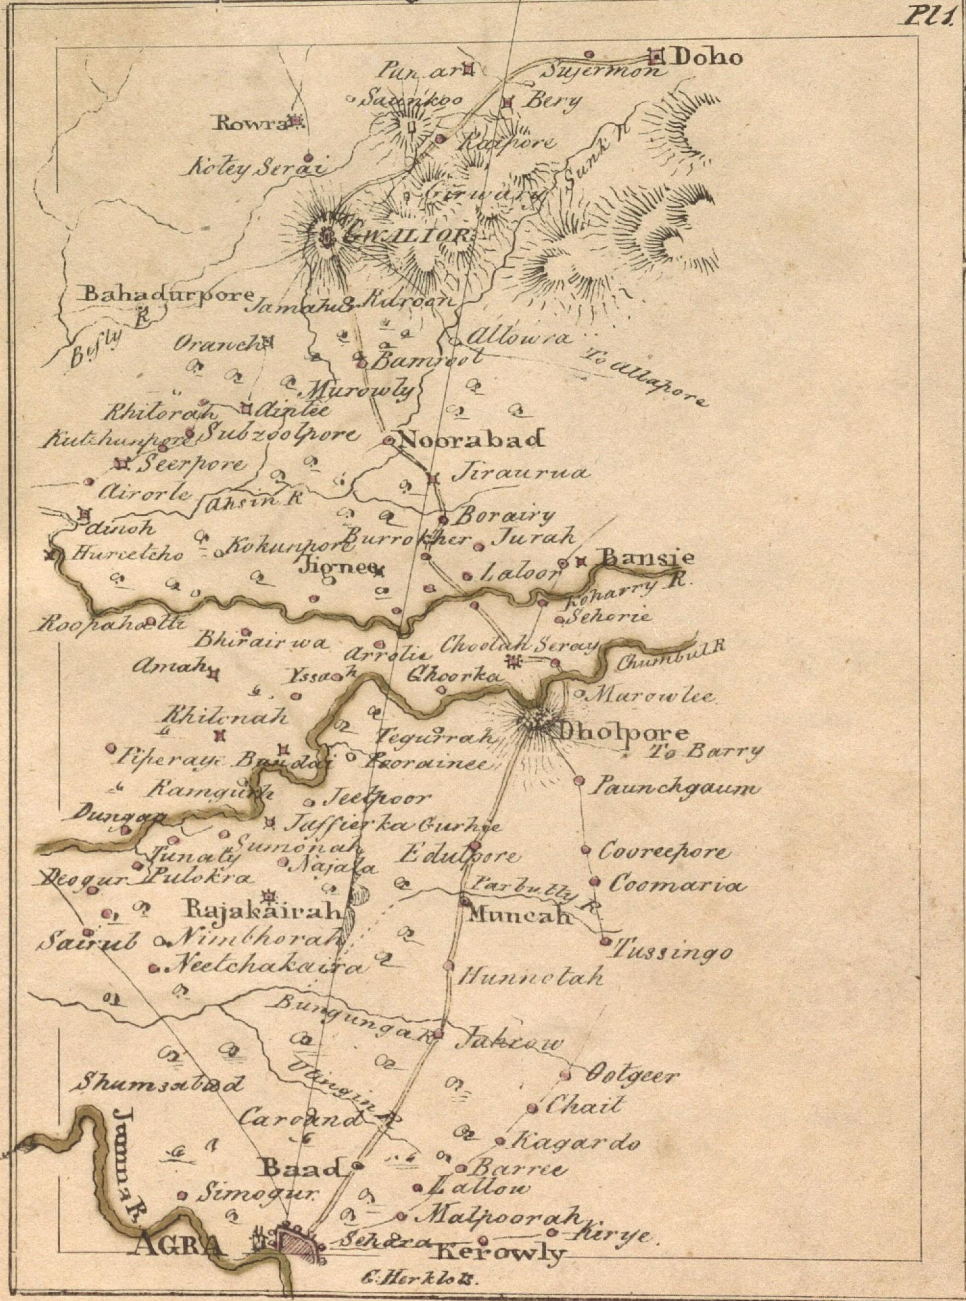 Pl 1.
Doho
Sujermon
Pun ar
Saunkoo
Bery
Rowra
Raipore
Kotey Serai
Sunk R
Girwary
GWALIOR
Bahadurpore
Jamahs
Kuroon
Besly R
Oranch
Allowra
Bamroot
To Allapore
Murowly
Khitorah
Aintee
Kutchunpore
Subzoolpore
Noorabad
Seerpore
Jiraurua
Airorle
Ahsin R
Ainoh
Borairy
Hurcetcho
Kokunpore
Burrokher
Jurah
Jignee
Bansie
Laloor
Koharry R.
Sehorie
Roopahatti
Bhirairwa
Arrolie
Choolah Seray
Chumbul R
Amah
Yssah
Ghoorka
Murowlee
Khitonah
Tegurrah
Dholpore
To Barry
Piperaye
Bandai
Poorainee
Ramgurh
Jeetpoor
Paunchgaum
Dungap
Jaffierka Gurhie
Sumonah
Edulpore
Cooreepore
Tunaty
Najala
Deogur
Pulokra
Parbutty R.
Coomaria
Rajakairah
Muncah
Sairub
Nimbhorah
Tussingo
Neetchakaira
Hunnotah
Bungunga R
Jahrow
Utingin R
Ootgeer
Shumsabad
Chait
Caround
Kagardo
Jumna R.
Baad
Barree
Simogur
Lallow
Malpoorah
AGRA
Sehara
Kerowly
Kirye.
C. Herklots.